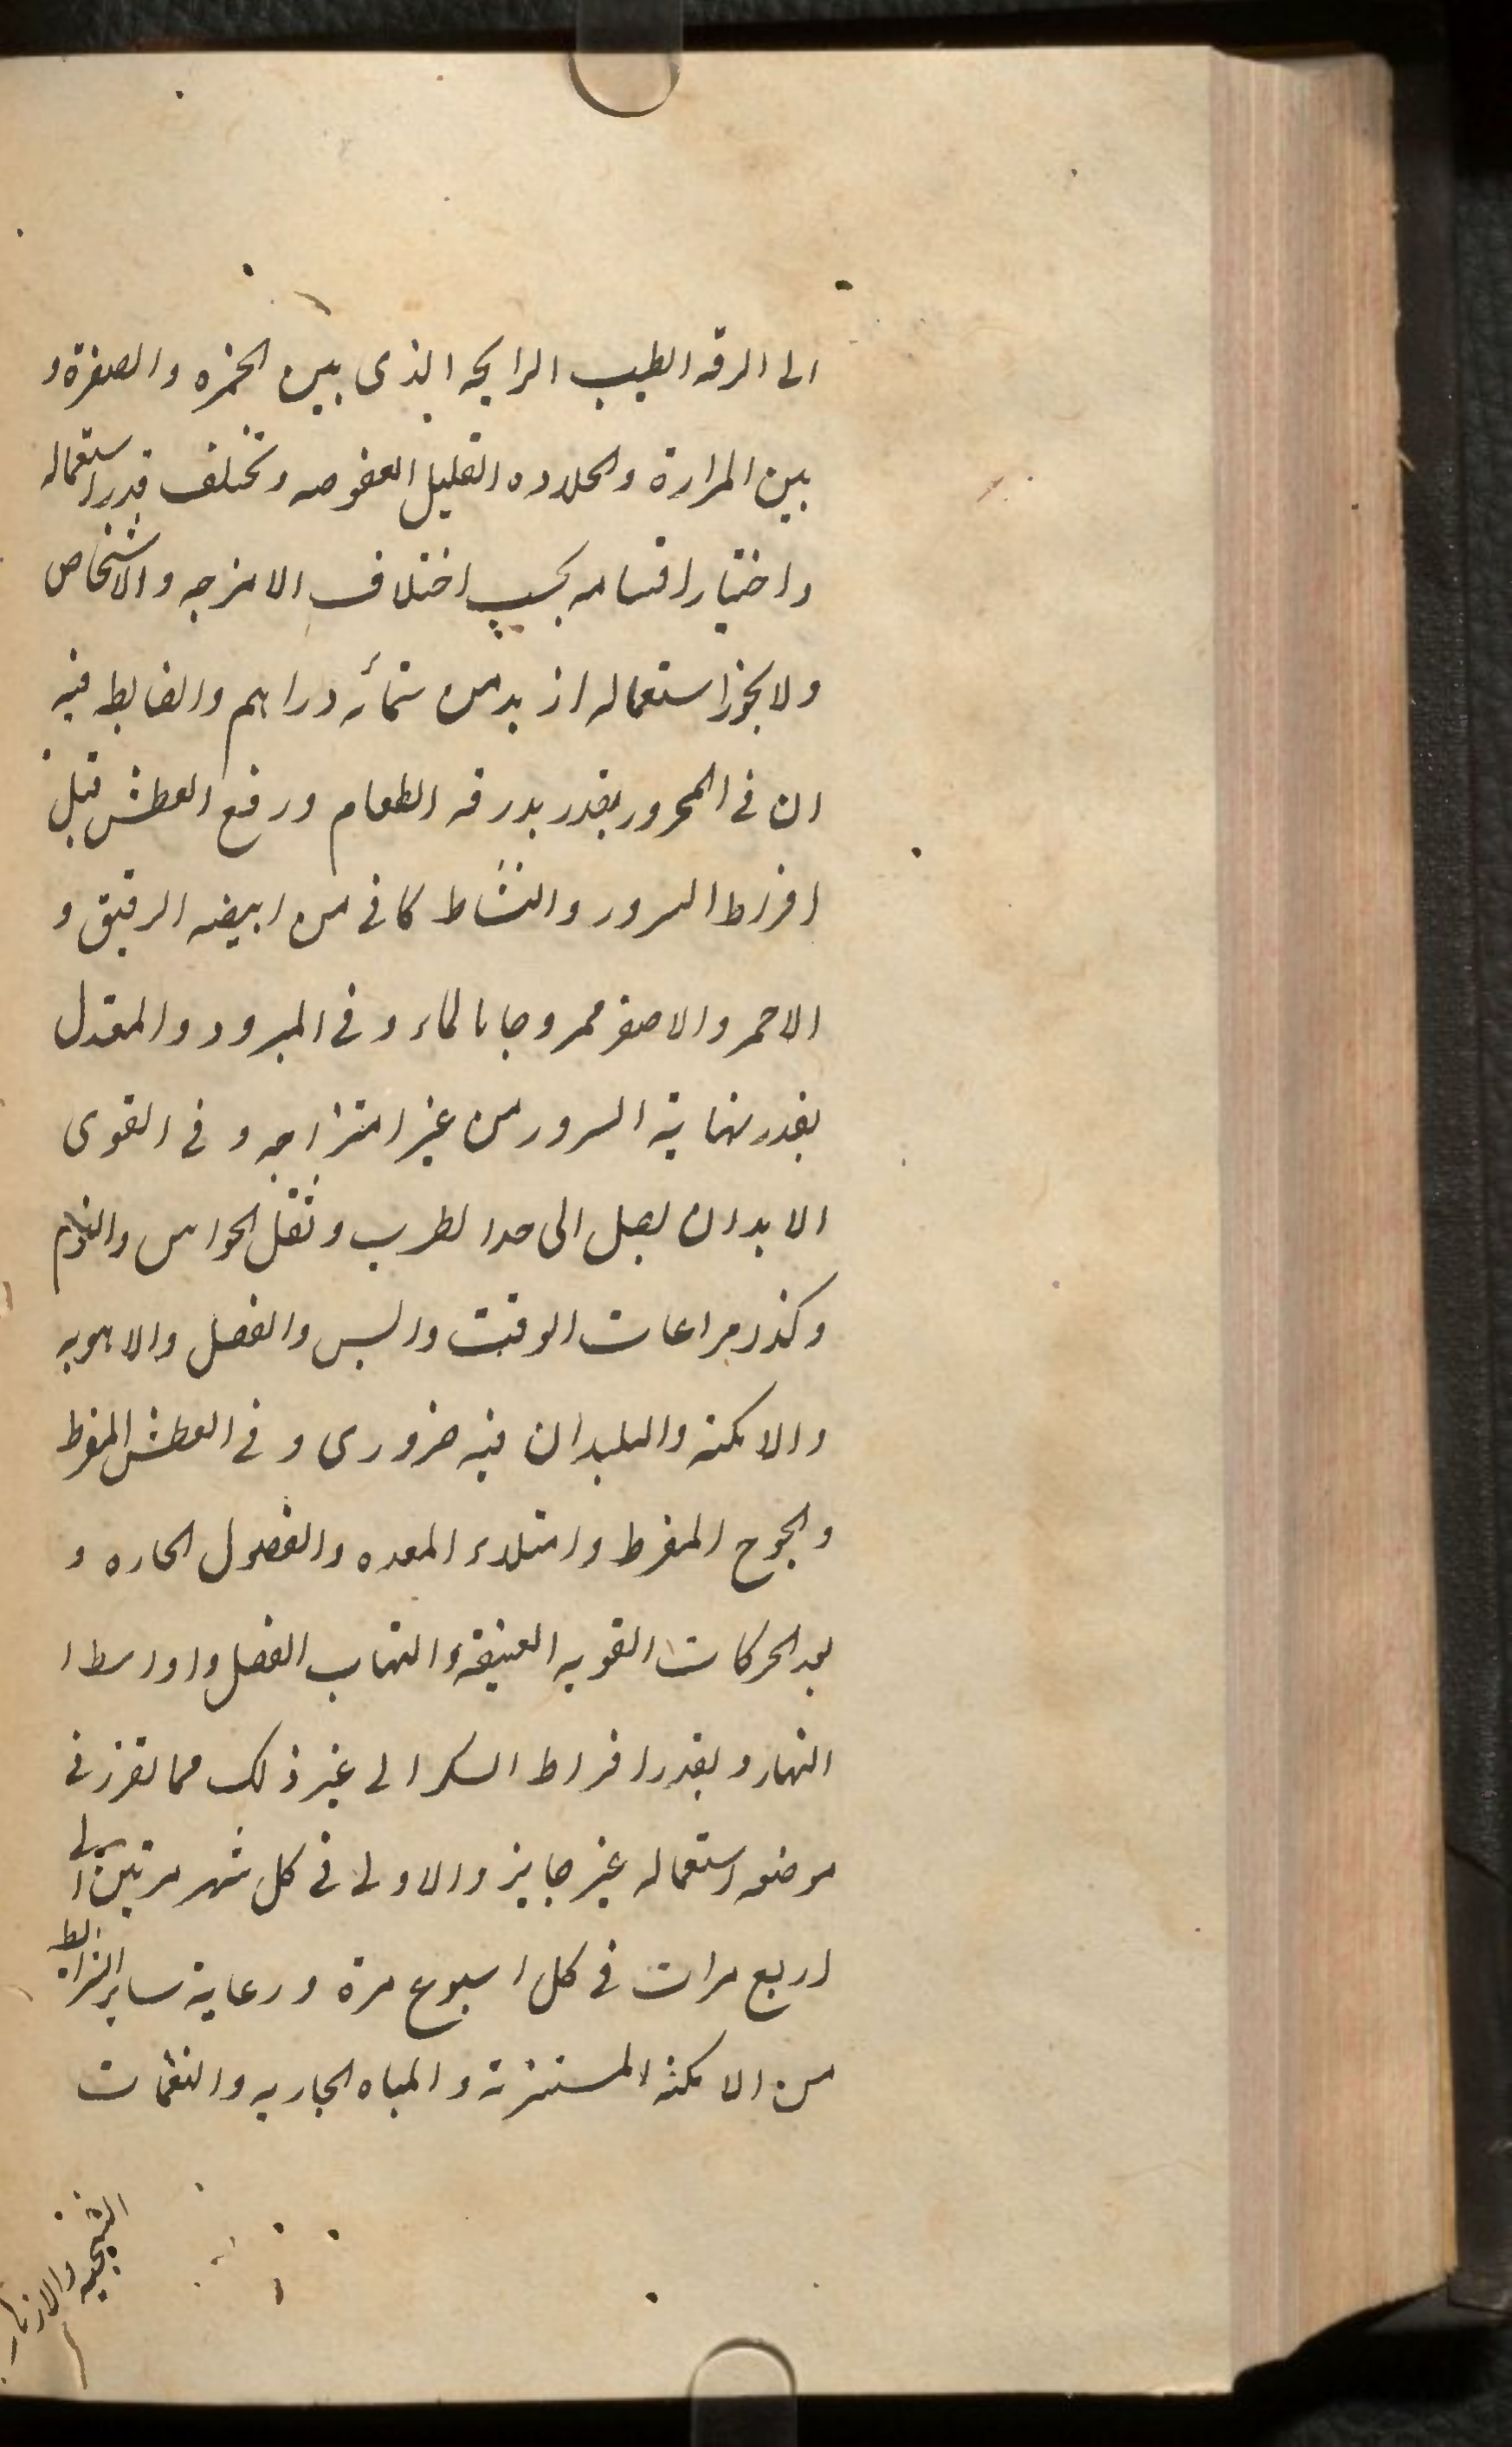 الى الرقه الطيب الرايحه الذى بين الحمره والصفرة و
بين المرارة والحلاوه القليل العفوصه وتختلف قدر استعماله
واختيار اقسامه بحسب اختلاف الامزجه والاشخاص
ولا يجوز استعماله ازيد من ستمأئه دراهم والضابطه فيه
ان فى المحرور بقدر بدرقه الطعام ورفع العطش قبل
افراط السرور والنشاط كافى من ابيضه الرقيق و
الاحمر والاصفر ممروجا بالماء وفى المبرود والمعتدل
بقدر نهاية السرور من غير امتزاجه وفى القوى
الابدان يصل الى حد الطرب وثقل الحواس والنوم
وكذا مراعات الوقت والسن والفصل والاهويه
والامكنه والبلدان فيه ضرورى وفى العطش المفرط
والجوع المفرط وامتلاء المعده والفصول الحاره و
بعد الحركات القويه العنيفة والتهاب الفصل واواسط ا
النهار وبقدر افراط السكر الى غير ذلك مما تقرر فى
موضعه استعماله غير جايز والاولى فى كل شهر مرتين الى
اربع مرات فى كل اسبوع مرة ورعاية ساير الشرايط
من الامكنه المستنزهة والمياه الجاريه والنغمات